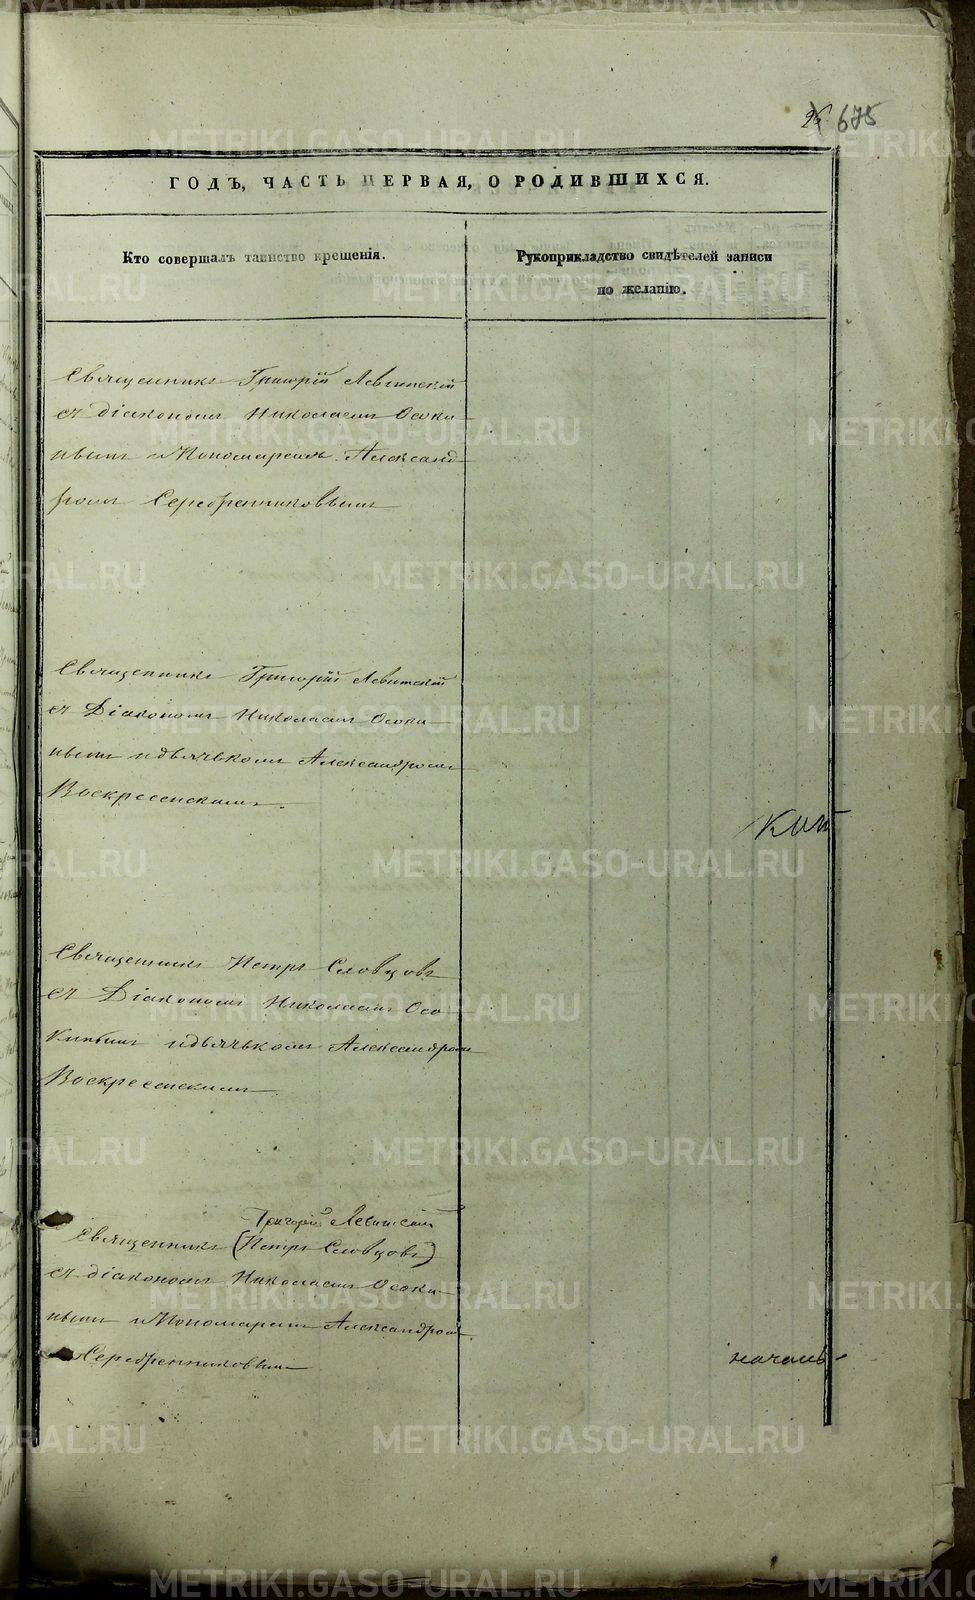 675
ГОДЪ, ЧАСТЬ ПЕРВАЯ, О РОДИВШИХСЯ.
Кто совершалъ таинство крещенія.
Рукоприкладство свидѣтелей записи
по желанію.
Священникъ Григорій Левитскій
съ діакономъ Николаемъ Осоки
нымъ и Пономаремъ Александ
ромъ Серебренниковымъ
Священникъ Григорій Левитскій
съ Діакономъ Николаемъ Осоки
нымъ и дьячькомъ Александромъ
Воскресенскимъ.
Священникъ Петръ Словцовъ
съ Діакономъ Николаемъ Осо
кинымъ и дьячькомъ Александромъ
Воскресенскимъ.
Григорій Левитскій
Священникъ (Петръ Словцовъ)
съ діакономъ Николаемъ Осоки
нымъ и Пономаремъ Александромъ
Серебренниковымъ
началь-
METRIKI.GASO-URAL.RU